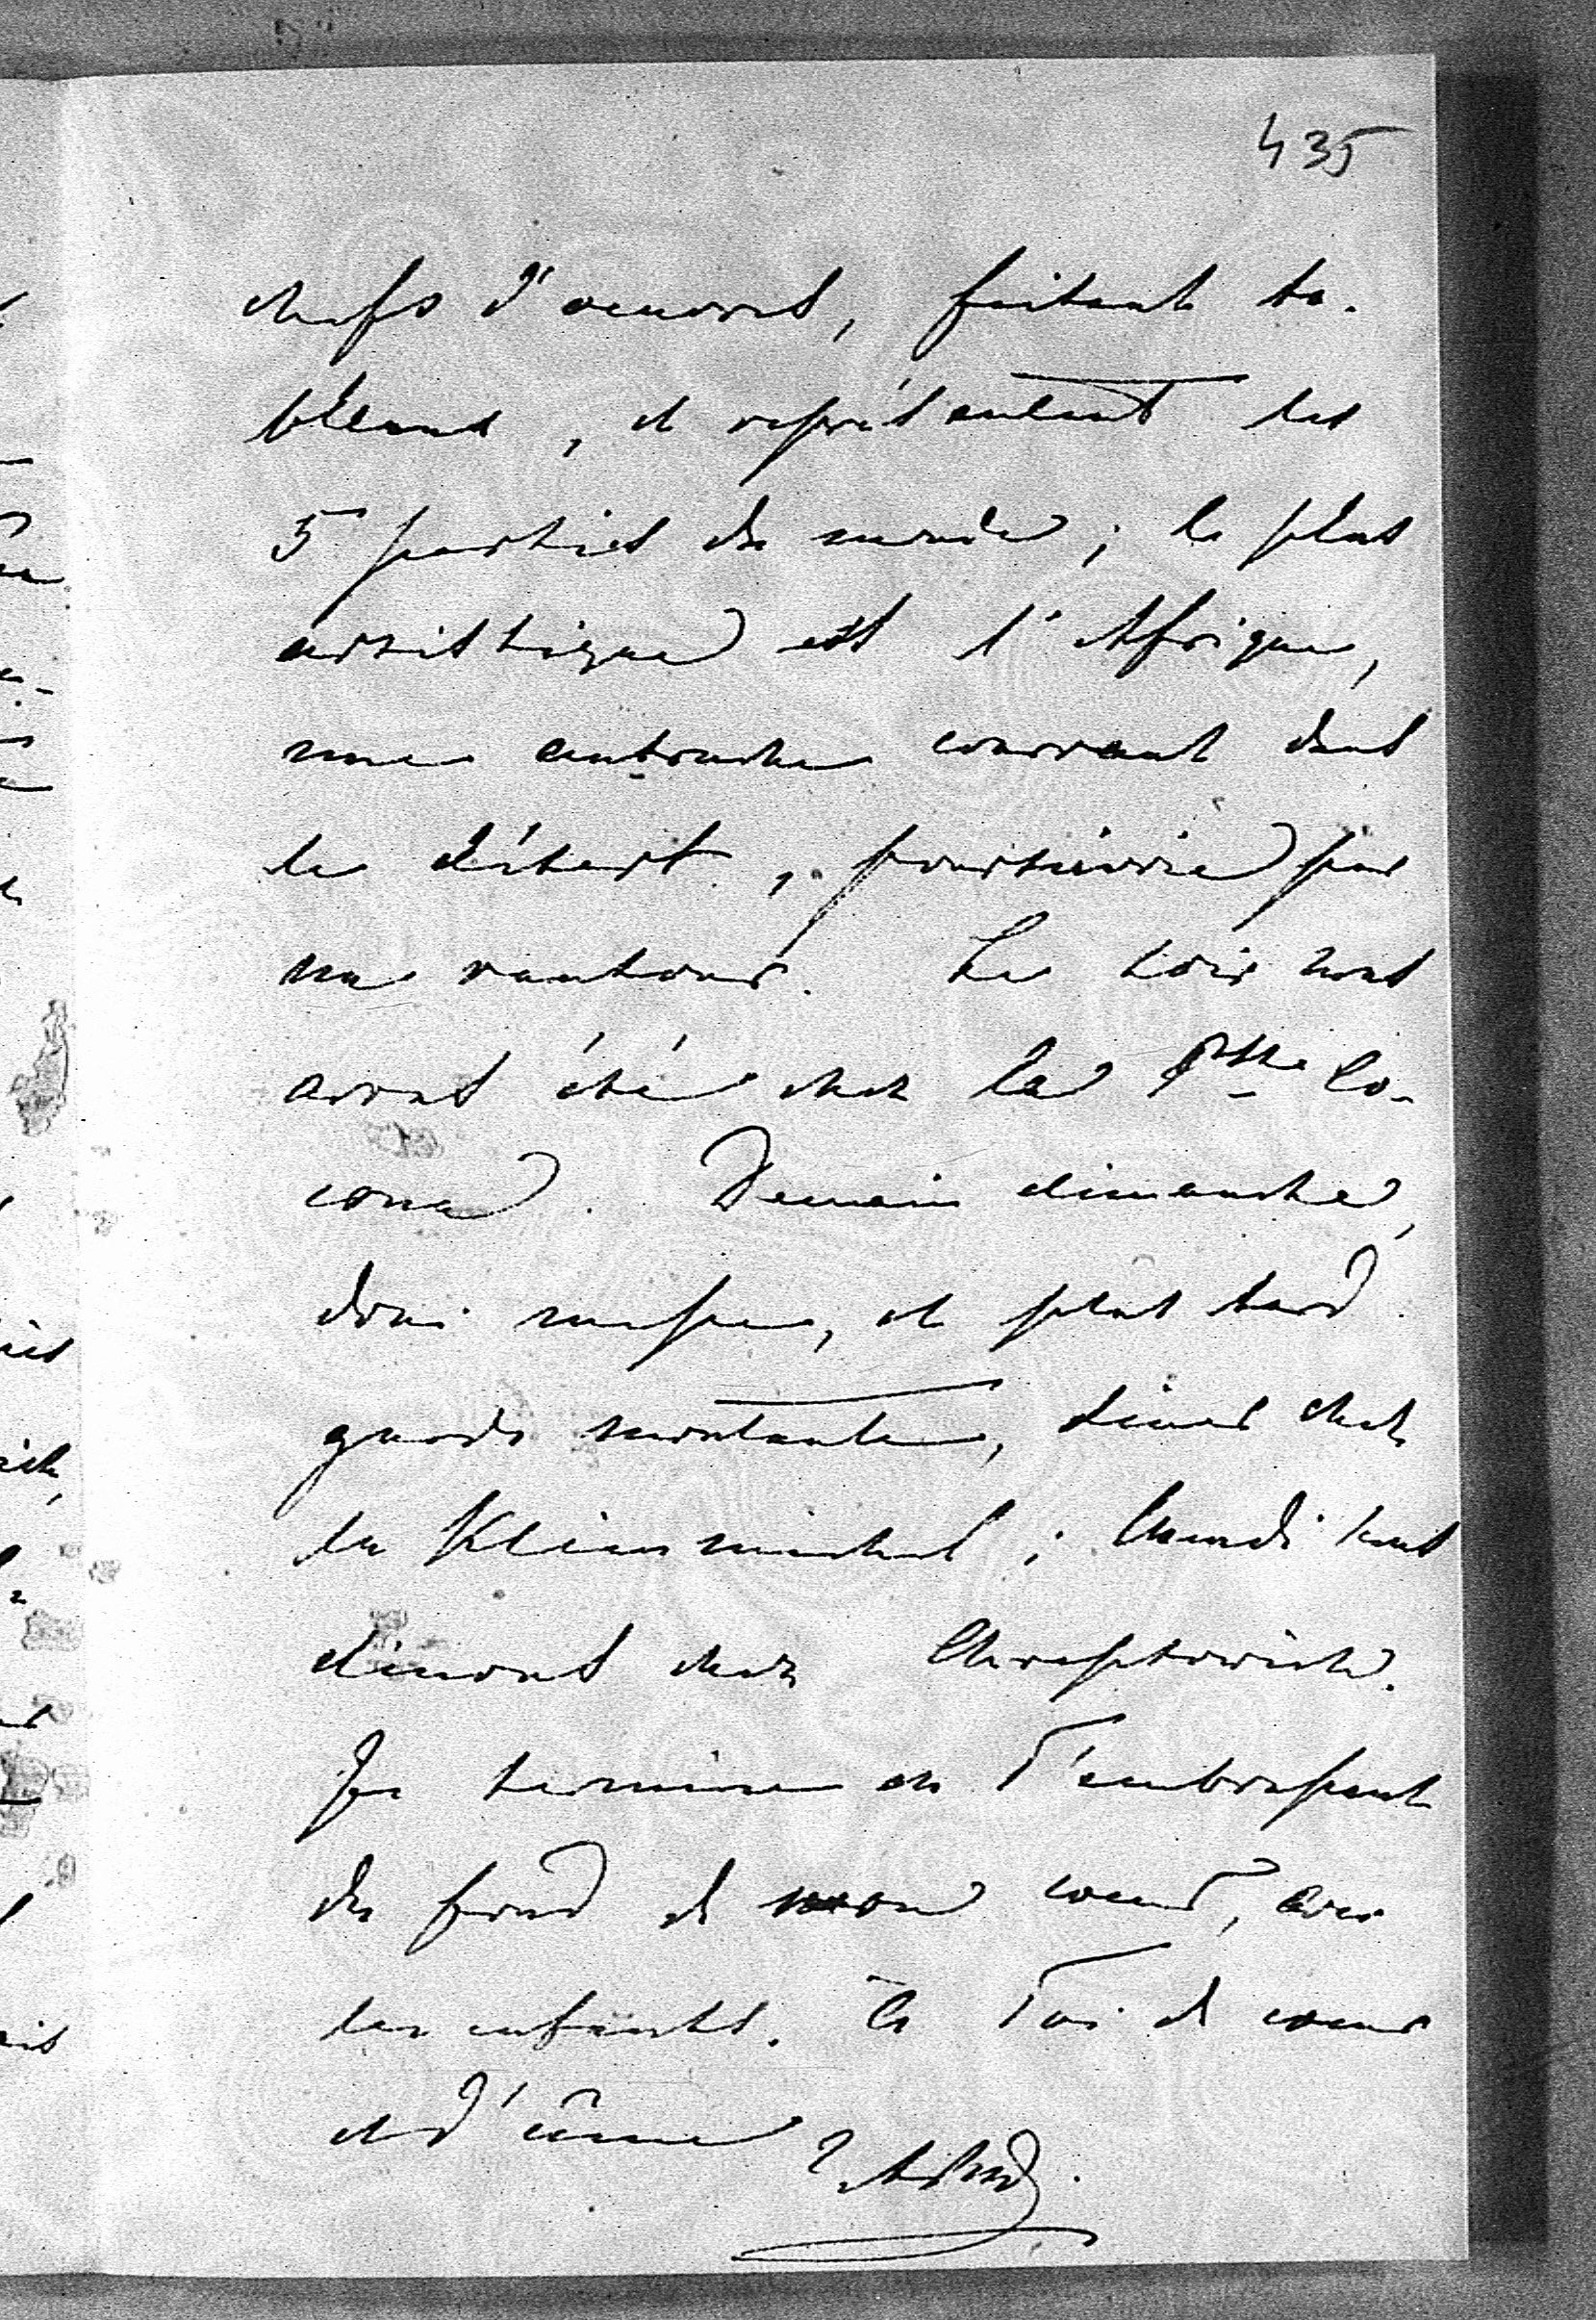 435
chefs d'oeuvres, faisant ta-
bleaux, et représentant les
5 parties du monde; le plus
artistique est l'Afrique,
une autruche courrant dans
le désert, poursuivie par
un vautour. Le soir nous
avons été chez la Psse Co-
cona. Demain dimanche,
donc messe, et plus tard
garde montante, diner chez
les Kleinmichel; lundi nous
dinons chez Chreptowich.
Je termine en T'embrassant
du fond de mon coeur, avec
les enfants. à Toi de coeur
et d'âme